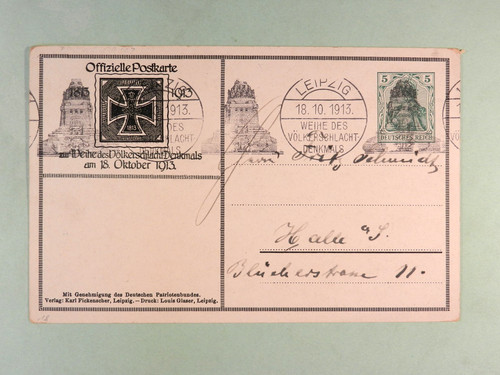 Offizielle Postkarte
1813 1913
1813
zur Weihe des Völkerschlacht Denkmals
am 18. Oktober 1913.
LEIPZIG
18.10.1913.
WEIHE DES
VÖLKERSCHLACHT-
DENKMALS
5 5
DEUTSCHES REICH
Herrn Fritz Schmidt
Halle a/S.
Blücherstrasse 11.
Mit Genehmigung des Deutschen Patriotenbundes.
Verlag: Karl Fickenscher, Leipzig. — Druck: Louis Glaser, Leipzig.